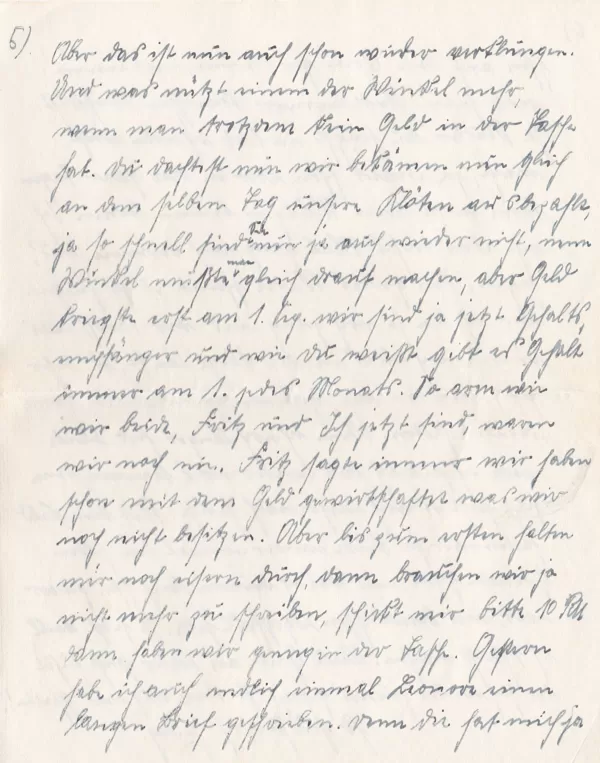 5).
Aber das ist nun auch schon wieder verklungen.
Und was nützt einem der Winkel mehr,
wenn man trotzdem kein Geld in der Tasche
hat. Du dachtest nun wir bekämen nun gleich
an dem selben Tag unsere Klöten ausbezahlt,
ja so schnell sind die nun ja auch wieder nicht, nene
Winkel mußte man gleich drauf machen, aber Geld
kriegste erst am 1. wir sind ja jetzt Gehalts,
empfänger und wie Du weißt gibt es Gehalt
immer am 1. jedes Monats. So arm wie
wir beide, Fritz und Ich jetzt sind, waren
wir noch nie. Fritz sagte immer wir haben
schon mit dem Geld gewirtschaftet was wir
noch nicht besitzen. Aber bis zum ersten halten
wir noch eisern durch, dann brauchen wir ja
nicht mehr zu schreiben, schickt mir bitte 10 RM
dann haben wir genug in der Tasche. Gestern
habe ich auch endlich einmal Leonore einen
langen Brief geschrieben. Denn die hat mich ja